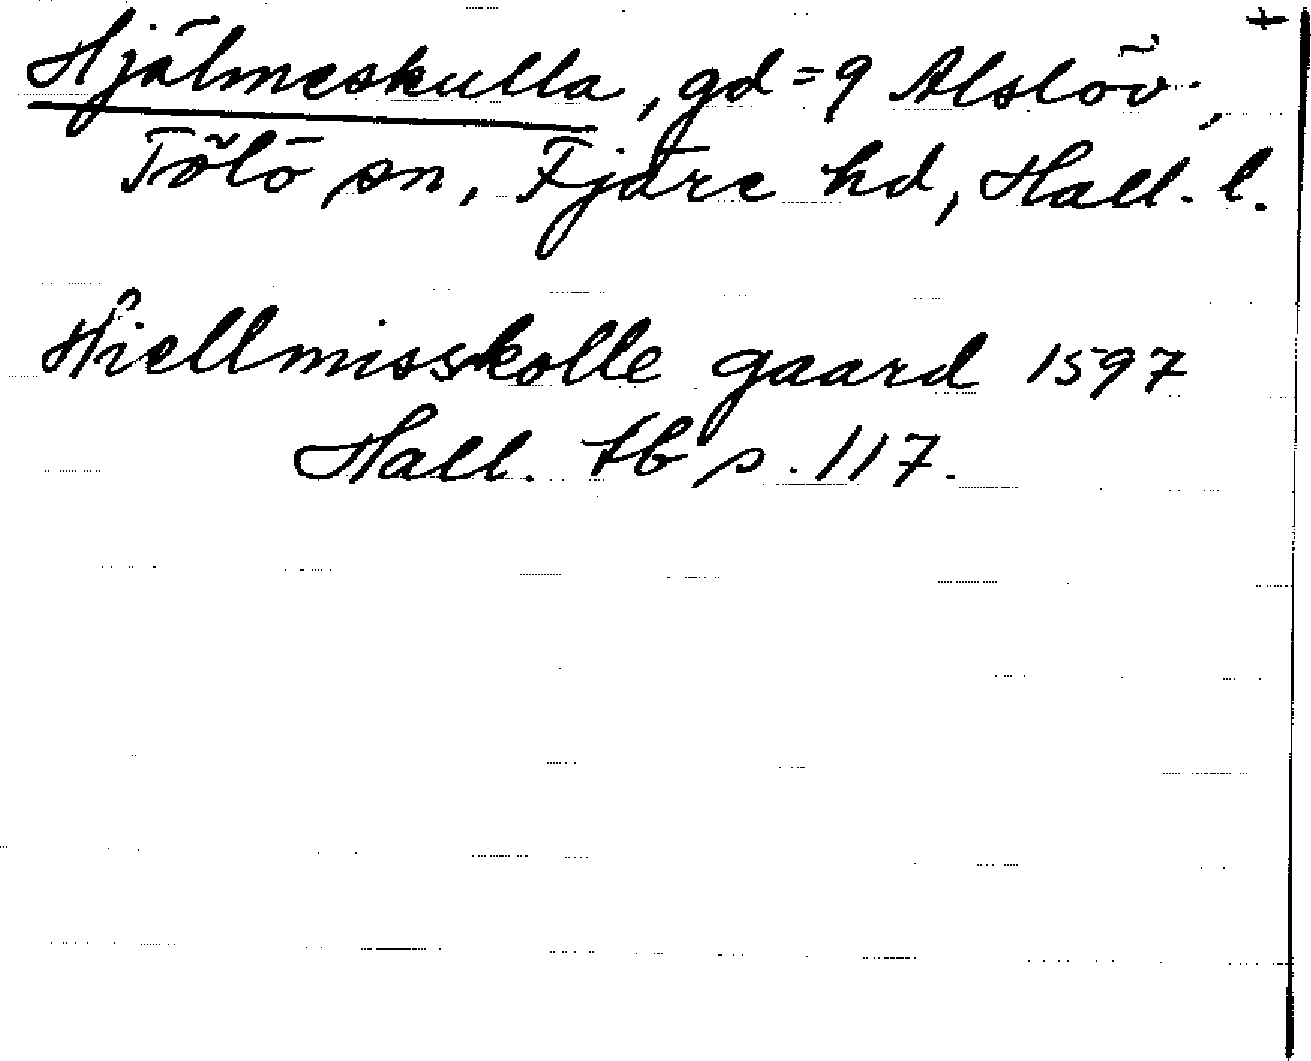 +
Hjälmeskulla, gd = 9 Alslöv,
Tölö sn, Fjäre hd, Hall. l.
Hiellmisskolle gaard 1597
Hall. tb s. 117.